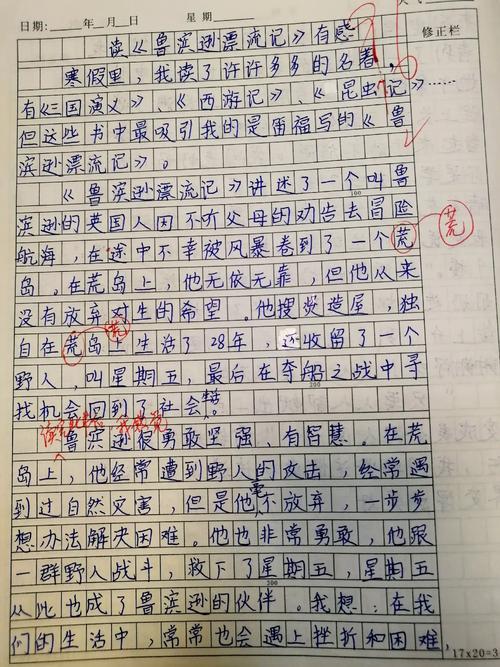 日期:____年__月__日 星期____ 修正栏
读《鲁滨逊漂流记》有感
寒假里,我读了许许多多的名著,
有《三国演义》、《西游记》、《昆虫记》……
但这些书中最吸引我的是雷福写的《鲁
滨逊漂流记》。
《鲁滨逊漂流记》讲述了一个叫鲁
100
滨逊的英国人因不听父母的劝告去冒险
航海,在途中不幸被风暴卷到了一个荒
荒
岛。在荒岛上,他无依无靠,但他从来
没有放弃对生的希望。他搜炎造屋,独
荒
自在荒岛上生活了28年,还收留了一个
野人,叫星期五,最后在夺船之战中寻
200
找机会回到了社会。
鲁滨逊很勇敢坚强、有智慧。在荒
岛上,他经常遭到野人的攻击,经常遇
到过自然灾害,但是他毫不放弃,一步步
想办法解决困难。他也非常勇敢,他跟
一群野人战斗,救下了星期五,星期五
300
从此也成了鲁滨逊的伙伴。我想:在我
们的生活中,常常也会遇上挫折和困难,
17×20=3